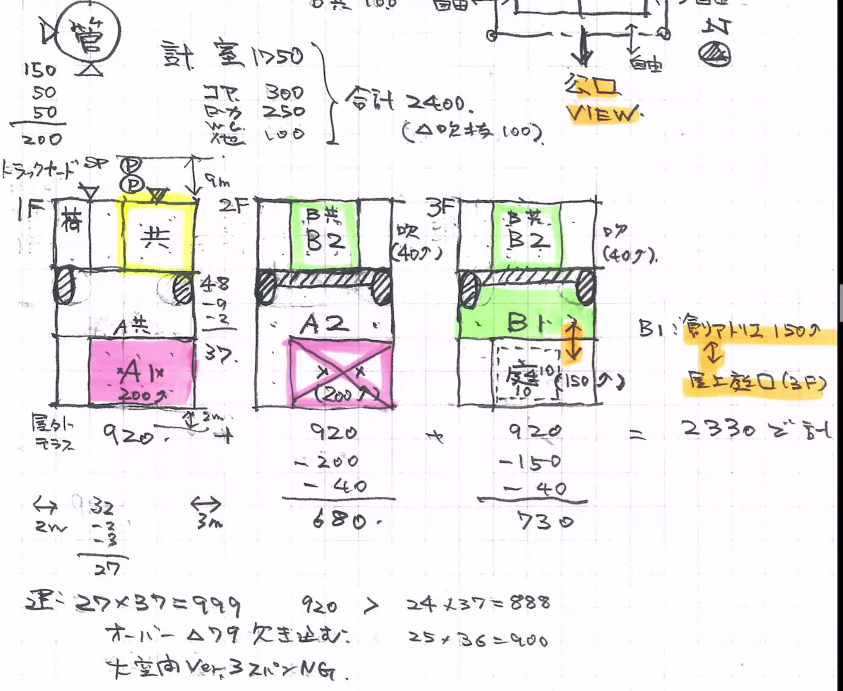 B共 100
自由
管
150
50
50
200
計 室 1750
コア. 300
ロカ 250
WC他 100
合計 2400.
(△吹抜 100).
自由
公口
VIEW.
N
トラックヤード
SP
P
P
9m
1F
荷
共
2F
B共
B2
吹
(40↑)
3F
B共
B2
吹
(40↑).
48
-9
-2
37.
A共
A1
200↑
A2
(200↑)
B1
10
10
(150↑)
B1: 創リアトリエ 150↑
屋上庭口(3F)
屋外テラス
2m
920. + 920 + 920 = 2330 で計
-200 -150
-40 -40
680. 730
2m
32
-2
-3
27
3m
運: 27×37=999 920 > 24×37=888
オーバー △79 欠き込む. 25×36=900
大空間 Ver. 3スパン NG.